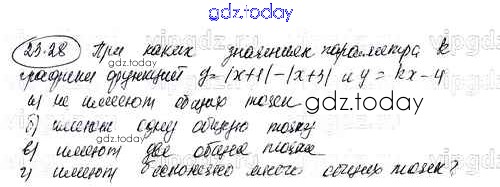 gdz.today
23.28 При каких значениях параметра k
графики функций y=|x+1|-|x+3| и y=kx-4
а) не имеют общих точек
б) имеют одну общую точку
в) имеют две общие точки
г) имеют бесконечно много общих точек?
gdz.today
gdz.today